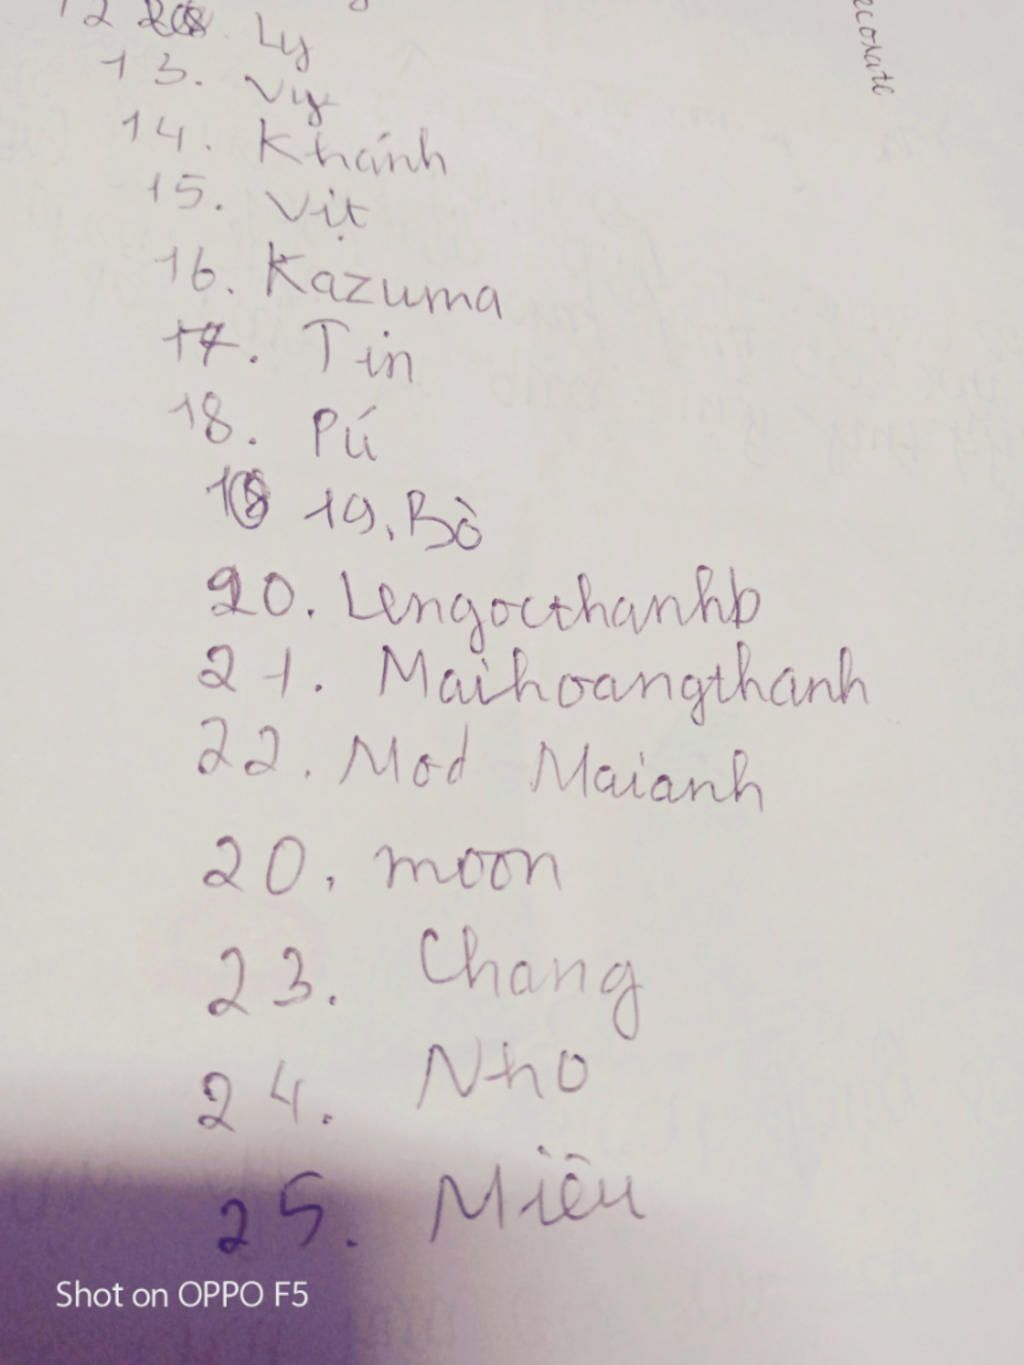 12 Ly
13. Vy
14. Khánh
15. Vịt
16. Kazuma
17. Tin
18. Pú
18 19. Bò
20. Lengocthanhb
21. Maihoangthanh
22. Mod Maianh
20. moon
23. Chang
24. Nho
25. Miêu
Shot on OPPO F5